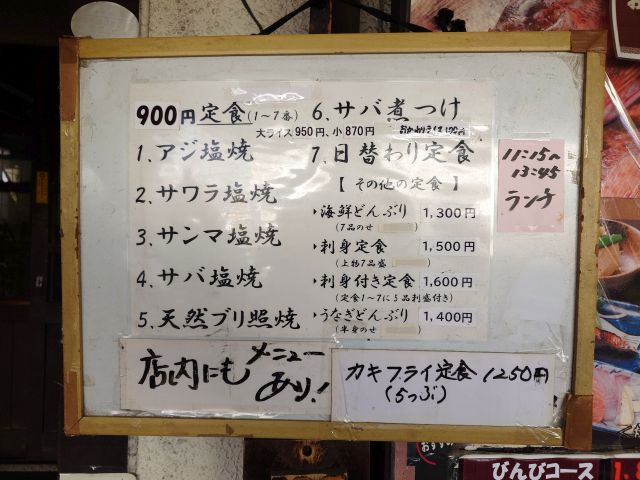 900円定食(1~7番)
大ライス950円、小870円
1. アジ塩焼
2. サワラ塩焼
3. サンマ塩焼
4. サバ塩焼
5. 天然ブリ照焼
6. サバ煮つけ
7. 日替わり定食
【 その他の定食 】
海鮮どんぶり 1,300円
(7品のせ
刺身定食 1,500円
(上物7品盛
刺身付き定食 1,600円
(定食1~7に5品刺盛付き)
うなぎどんぶり 1,400円
(半身のせ
11:15~
13:45
ランチ
店内にも
メニュー
あり!
カキフライ定食 1250円
(5っぷ)
びんびコース